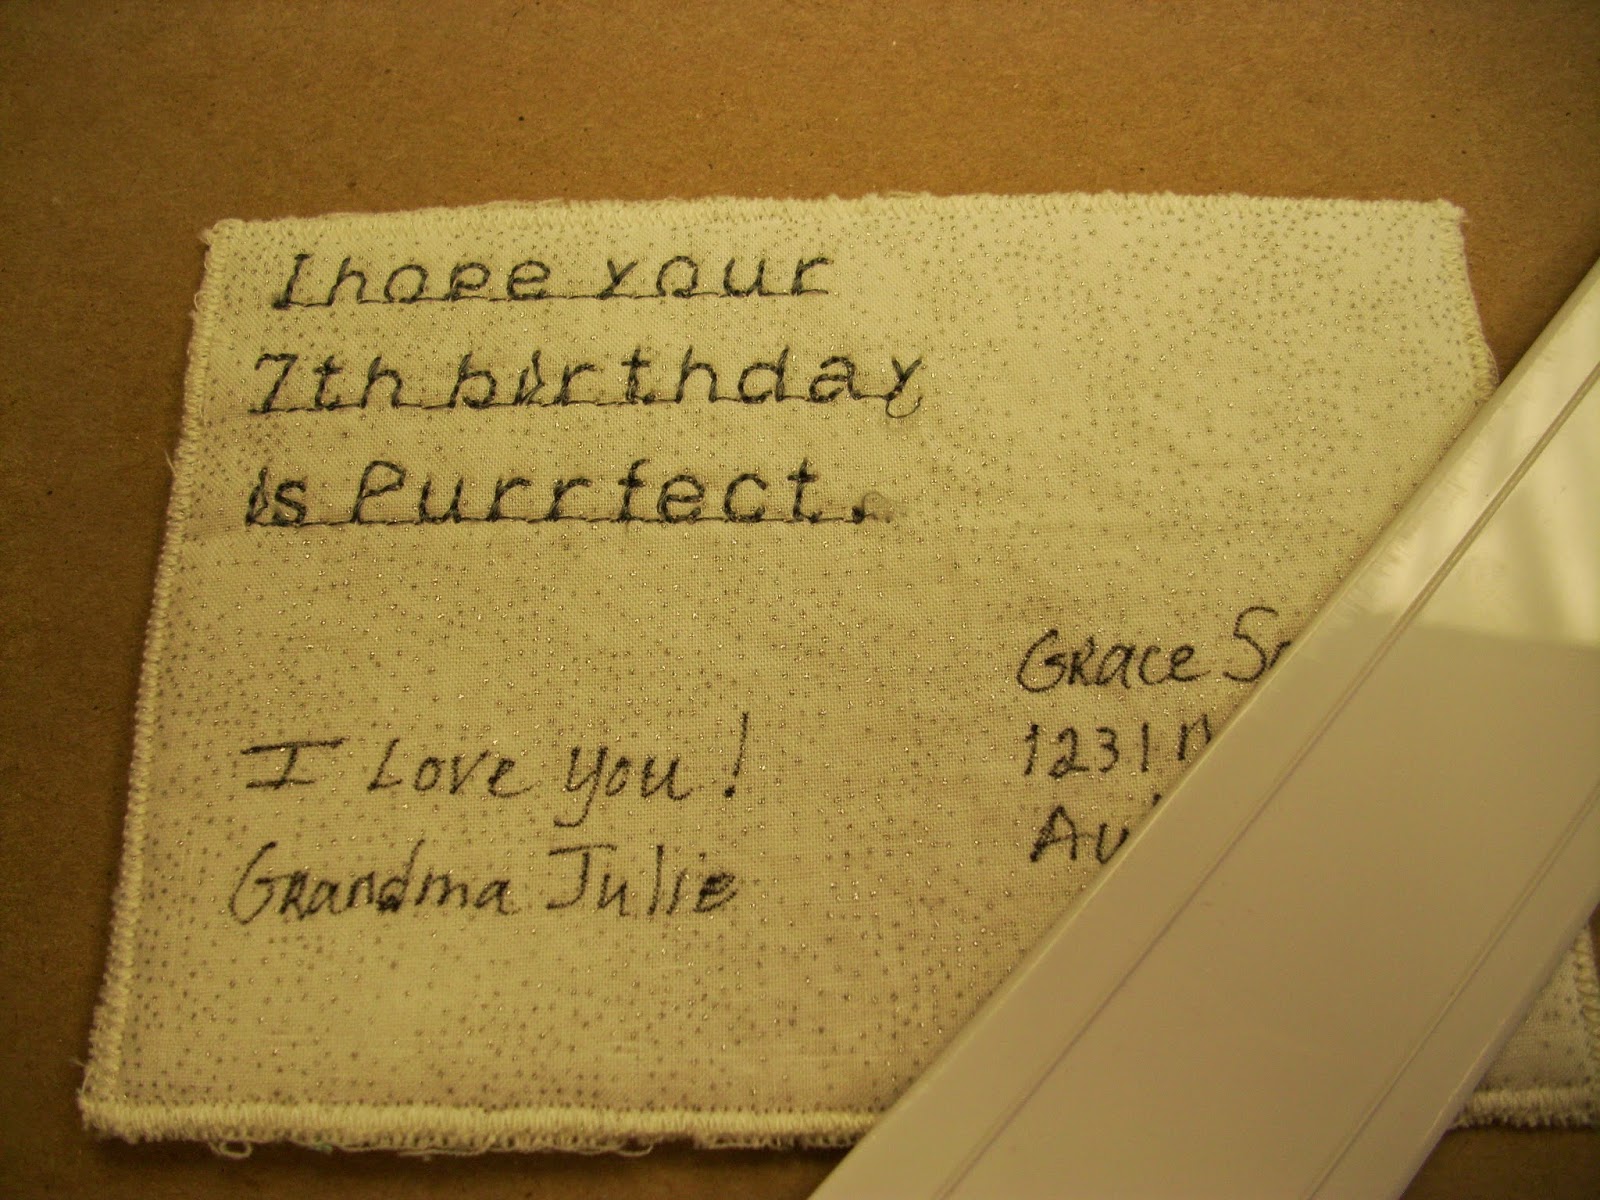 I hope your
7th birthday
is Purrfect.
I Love you!
Grandma Julie
Grace
1231